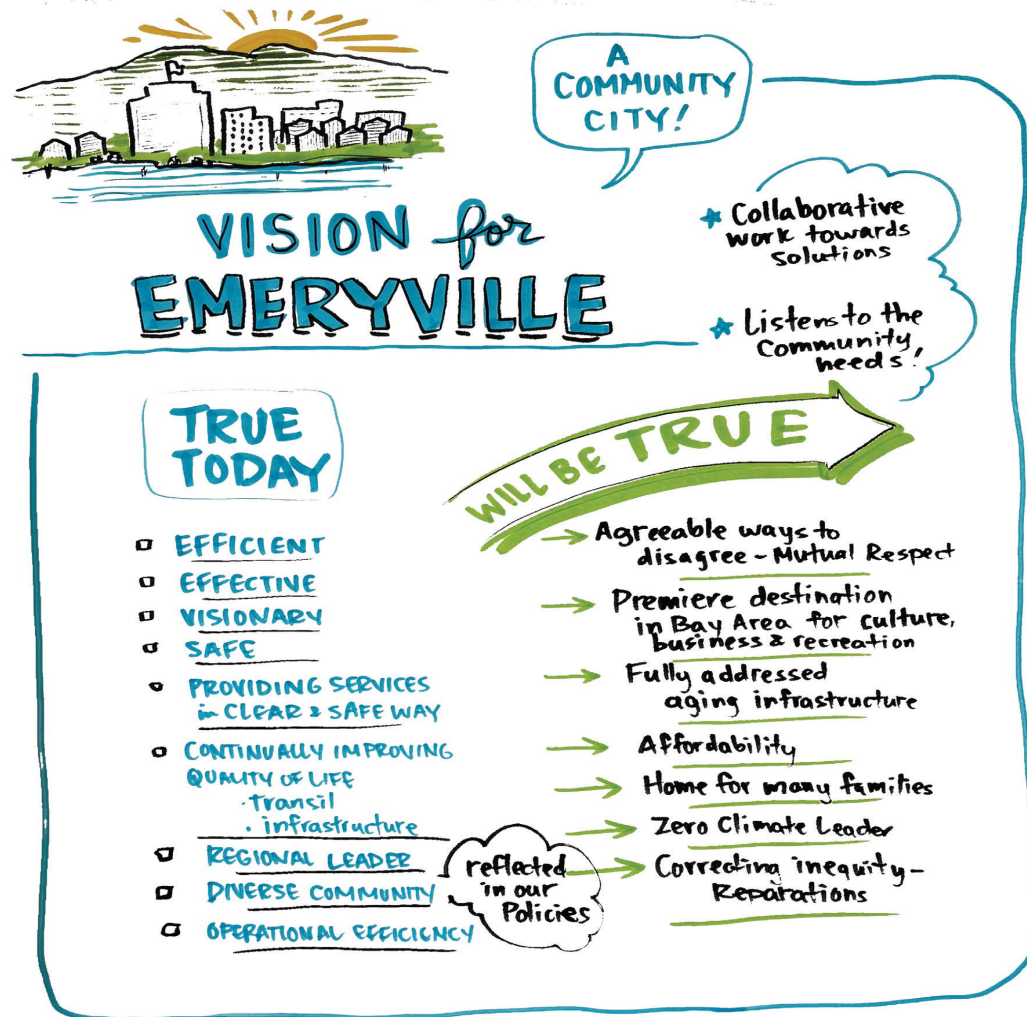 A
COMMUNITY
CITY!
VISION for
EMERYVILLE
★ Collaborative
work towards
solutions
★ Listens to the
Community
needs!
TRUE
TODAY
EFFICIENT
EFFECTIVE
VISIONARY
SAFE
PROVIDING SERVICES
in CLEAR & SAFE WAY
CONTINUALLY IMPROVING
QUALITY OF LIFE
· transil
· infrastructure
REGIONAL LEADER
DIVERSE COMMUNITY
OPERATIONAL EFFICIENCY
reflected
in our
Policies
WILL BE TRUE
→ Agreeable ways to
disagree - Mutual Respect
→ Premiere destination
in Bay Area for culture,
business & recreation
→ Fully addressed
aging infrastructure
→ Affordability
→ Home for many families
→ Zero Climate Leader
→ Correcting inequity -
Reparations